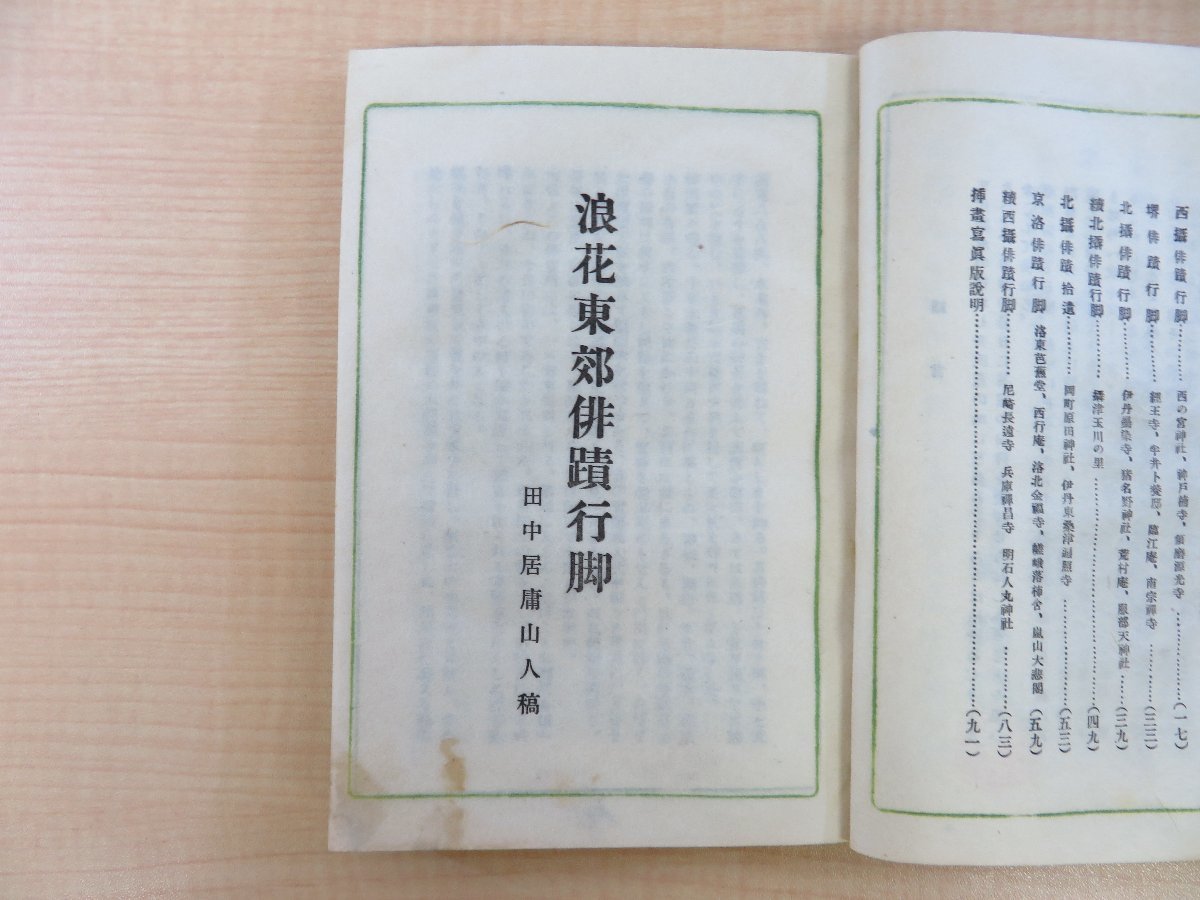 西攝俳蹟行脚…………西の宮神社、神戸楠寺、須磨源光寺…………(一七)
堺俳蹟行脚…………經王寺、牛井卜養邸、臨江庵、南宗禪寺…………(三三)
北攝俳蹟行脚…………伊丹墨染寺、猪名野神社、荒村庵、服部天神社……(三九)
續北攝俳蹟行脚…………攝津玉川の里…………(四九)
北攝俳蹟拾遺…………岡町原田神社、伊丹東桑津遍照寺…………(五三)
京洛俳蹟行脚 洛東芭蕉堂、西行庵、洛北金福寺、嵯峨落柿舍、嵐山大悲閣(五九)
續西攝俳蹟行脚…………尼崎長遠寺 兵庫禪昌寺 明石人丸神社…………(八三)
挿畫寫眞版說明…………(九一)
浪花東郊俳蹟行脚
田中居庸山人稿